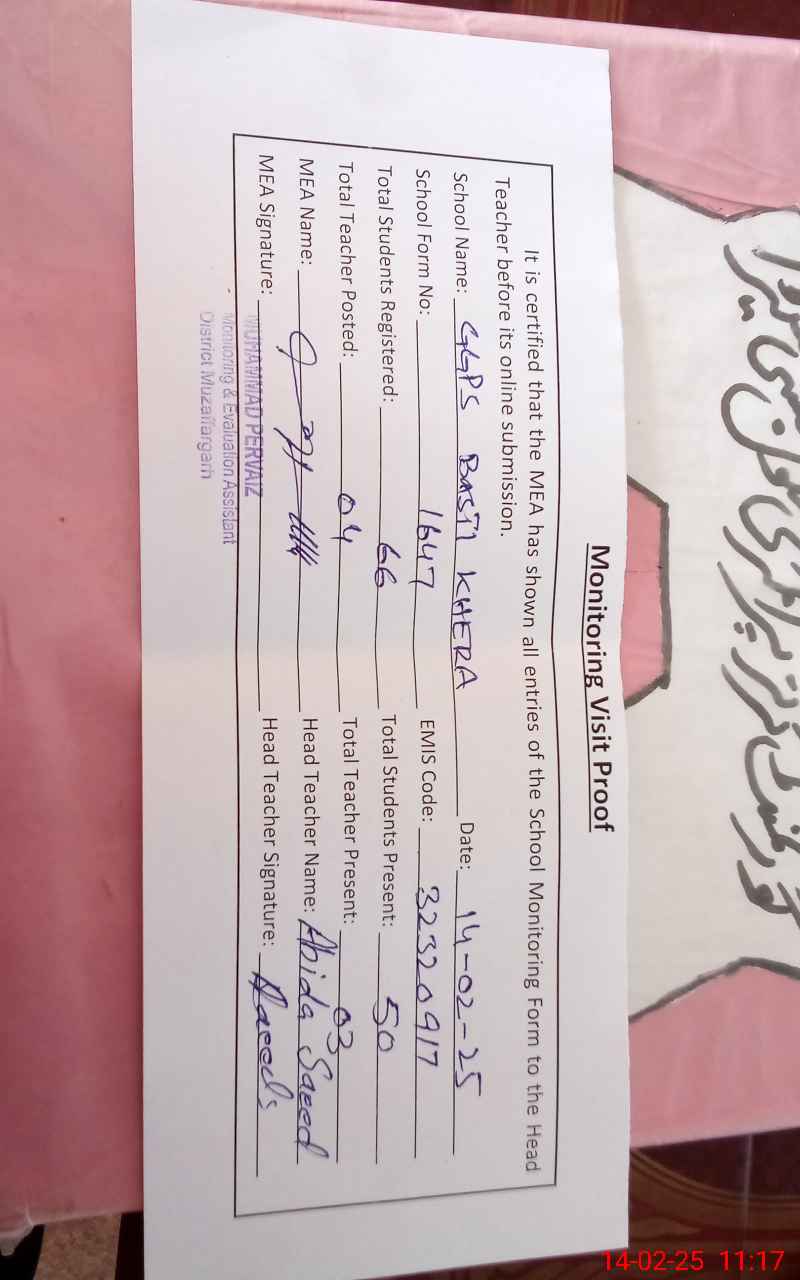 Monitoring Visit Proof
It is certified that the MEA has shown all entries of the School Monitoring Form to the Head
Teacher before its online submission.
School Name: GGPS BASTI KHERA Date: 14-02-25
School Form No: 1647 EMIS Code: 32320917
Total Students Registered: 66 Total Students Present: 50
Total Teacher Posted: 04 Total Teacher Present: 03
MEA Name: Head Teacher Name: Abida Saeed
MEA Signature: Head Teacher Signature:
MUHAMMAD PERVAIZ
Monitoring & Evaluation Assistant
District Muzaffargarh
14-02-25 11:17